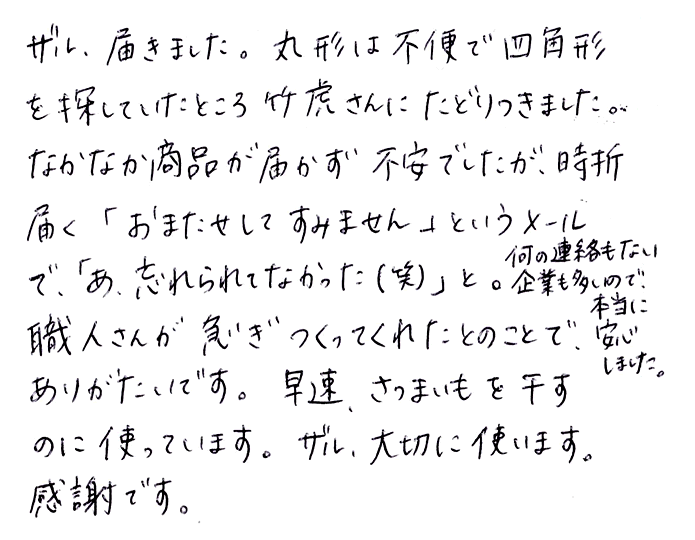 ザル、届きました。丸形は不便で四角形
を探していたところ竹虎さんにたどりつきました。
なかなか商品が届かず不安でしたが、時折
届く「おまたせしてすみません」というメール
で、「あ、忘れられてなかった(笑)」と。
何の連絡もない
企業も多いので、
本当に
安心
しました。
職人さんが急いぎつくってくれたとのことで、
ありがたいです。早速、さつまいもを干す
のに使っています。ザル、大切に使います。
感謝です。